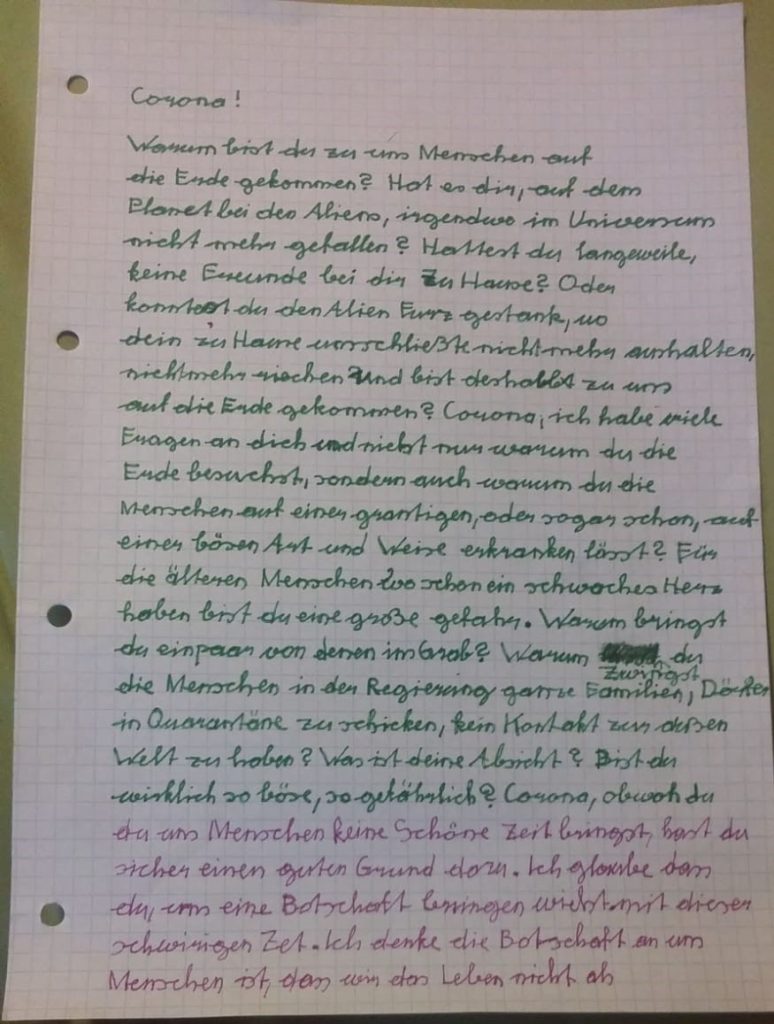 Corona!
Warum bist du zu uns Menschen auf
die Erde gekommen? Hat es dir, auf dem
Planet bei den Aliens, irgendwo im Universum
nicht mehr gefallen? Hattest du langeweile,
keine Freunde bei dir zu Hause? Oder
konntest du den Alien Furz gestank, wo
dein zu Hause umschließte nicht mehr aushalten,
nicht mehr riechen und bist deshalbt zu uns
auf die Erde gekommen? Corona, ich habe viele
Fragen an dich und nicht nur warum du die
Erde besuchst, sondern auch warum du die
Menschen auf einer grantigen, oder sogar schon, auf
einer bösen Art und Weise erkranken lässt? Für
die älteren Menschen wo schon ein schwaches Herz
haben bist du eine große gefahr. Warum bringst
du einpaar von denen ins Grab? Warum zwingst du
die Menschen in der Regierung ganze Familien, Dörfer
in Quarantäne zu schicken, kein Kontakt zur außen
Welt zu haben? Was ist deine Absicht? Bist du
wirklich so böse, so gefährlich? Corona, obwoh du
du uns Menschen keine Schöne Zeit bringst, hast du
sicher einen guten Grund dazu. Ich glaube das
du, uns eine Botschaft bringen willst mit dieser
schwirigen Zet. Ich denke die Botschaft an uns
Menschen ist, das wir das Leben nicht als